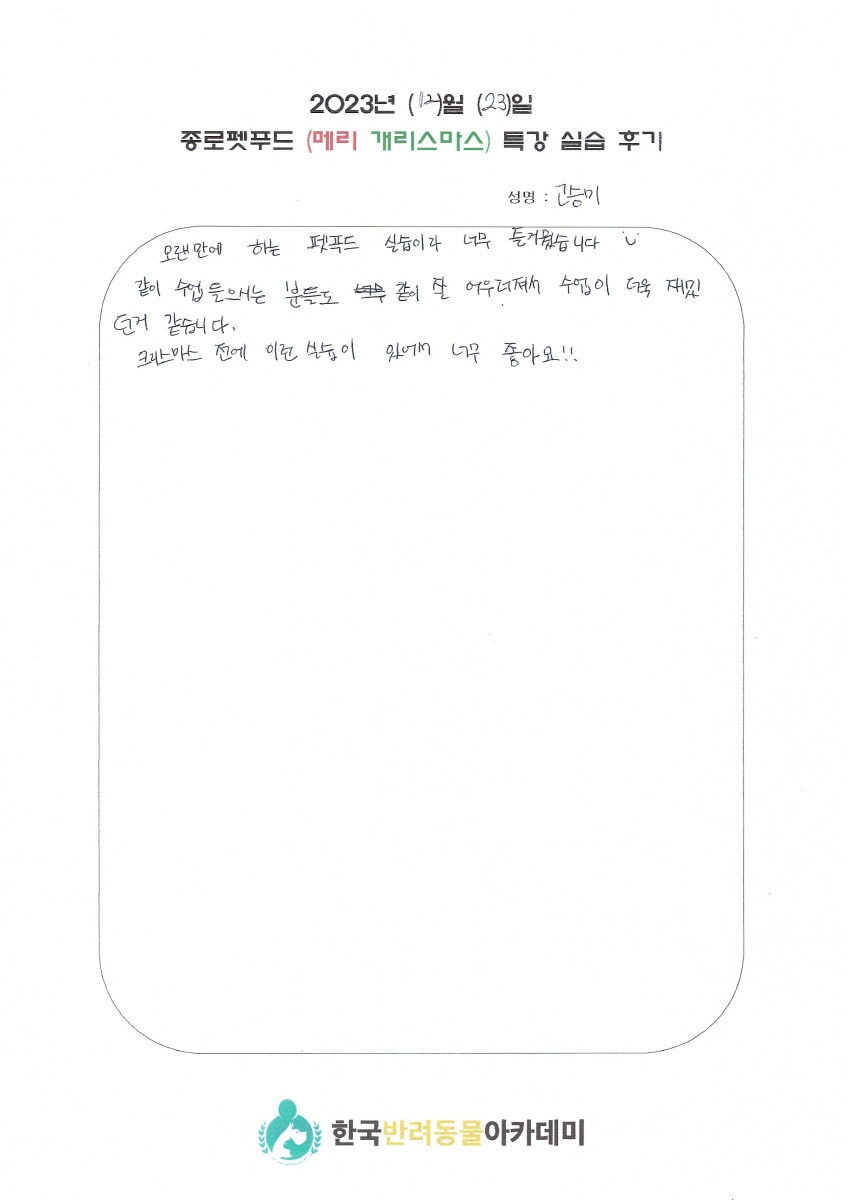 2023년 (12)월 (23)일
종로펫푸드 (메리 개리스마스) 특강 실습 후기
성명 : 간승미
오랜만에 하는 펫푸드 실습이라 너무 즐거웠습니다 :)
같이 수업 들으시는 분들도 같이 잘 어우러져서 수업이 더욱 재밌
던거 같습니다.
크리스마스 전에 이런 실습이 있어서 너무 좋아요!!
한국반려동물아카데미